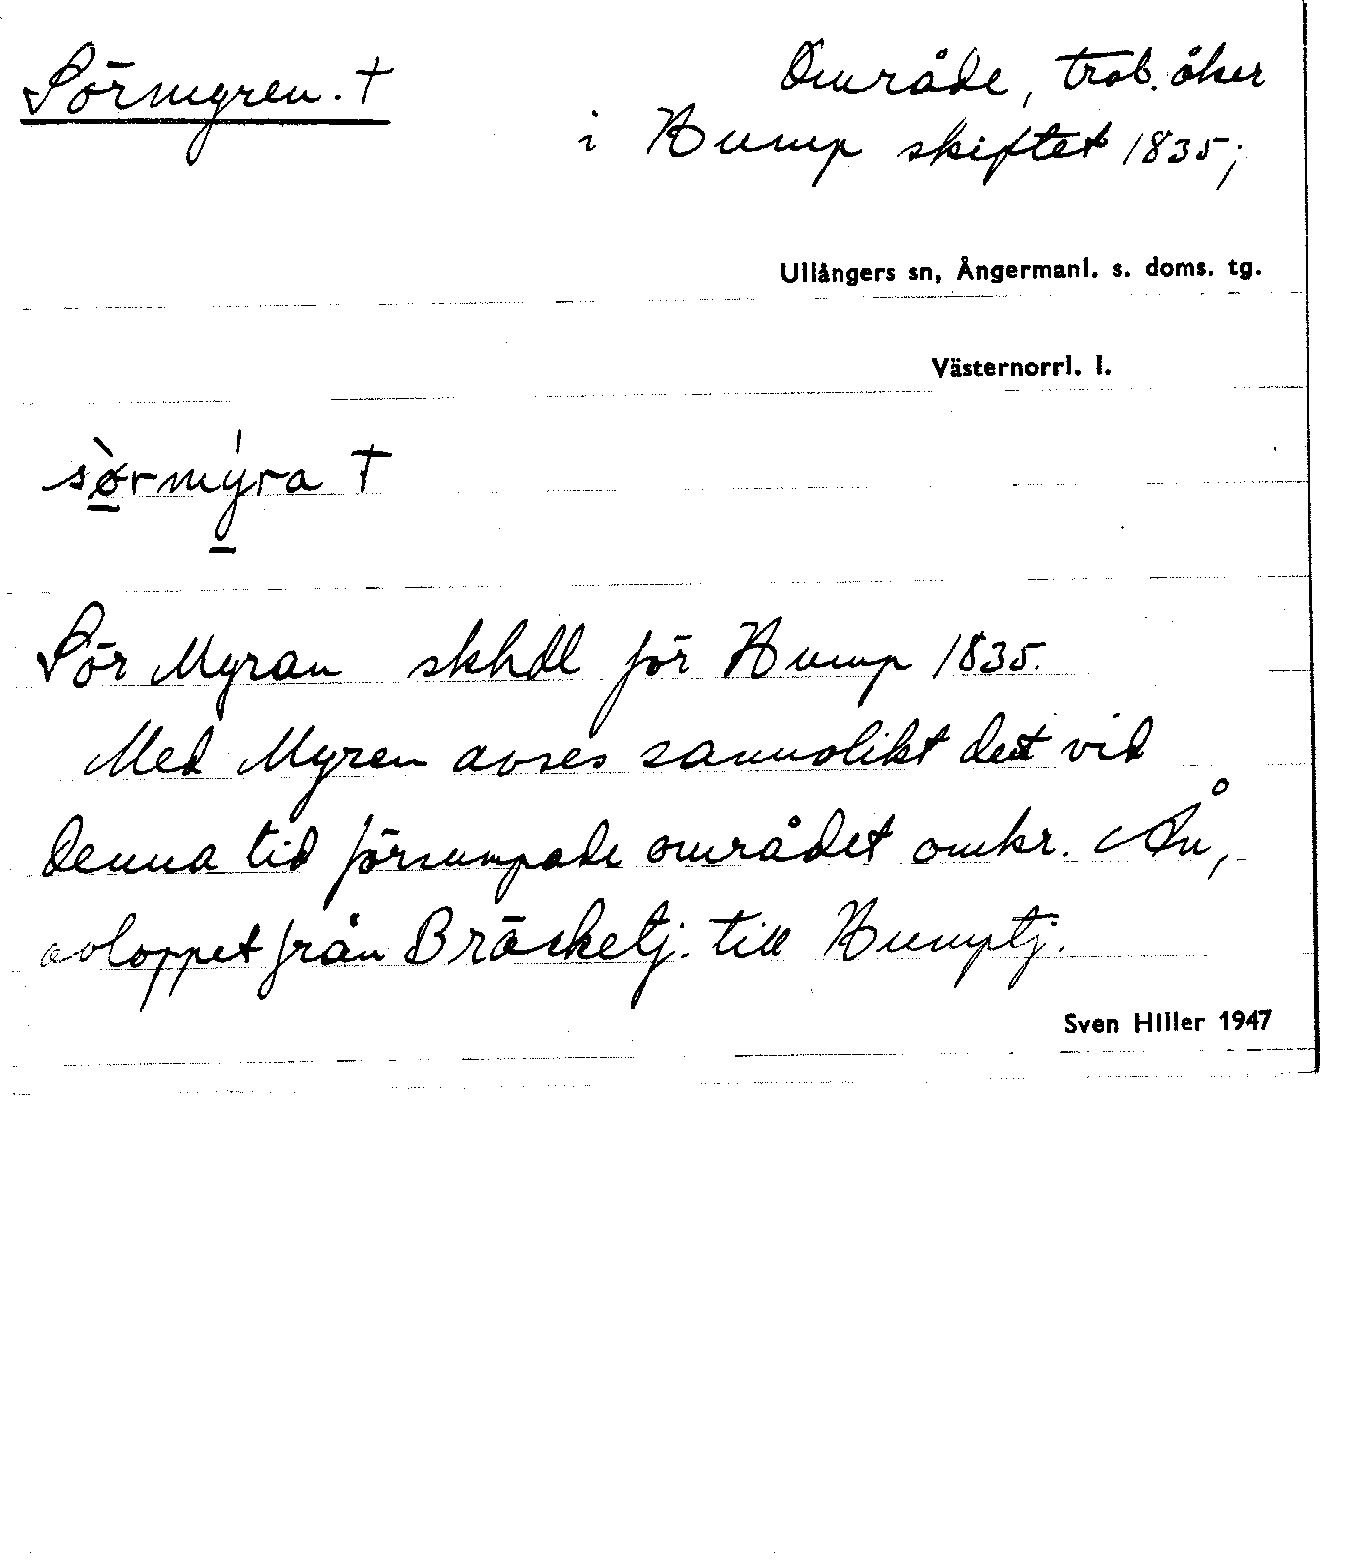 Sörmyren. †
Område, trol. åker
i Hump skiftet 1835;
Ullångers sn, Ångermanl. s. doms. tg.
Västernorrl. l.
sø̀rmýra †
Sör Myran skhdl för Hump 1835.
Med Myren avses sannolikt det vid
denna tid försumpade området omkr. Ån,
avloppet från Bräcketj. till Humptj.
Sven Hiller 1947